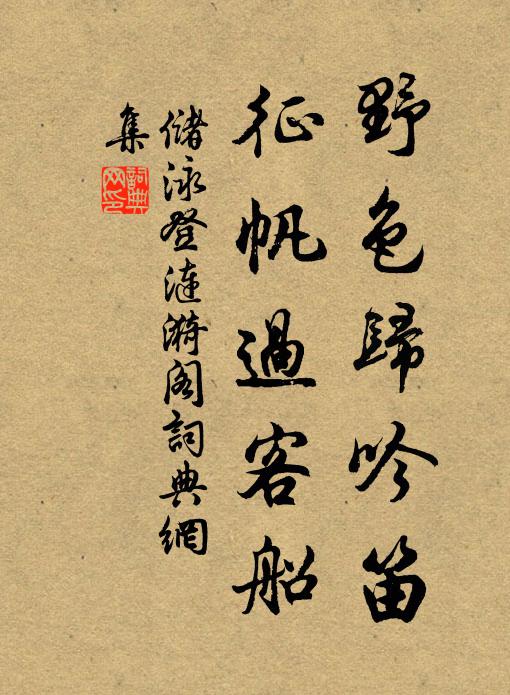 野色歸吟笛
征帆過客船
儲泳登漣漪閣詞典網
集
詞典網印